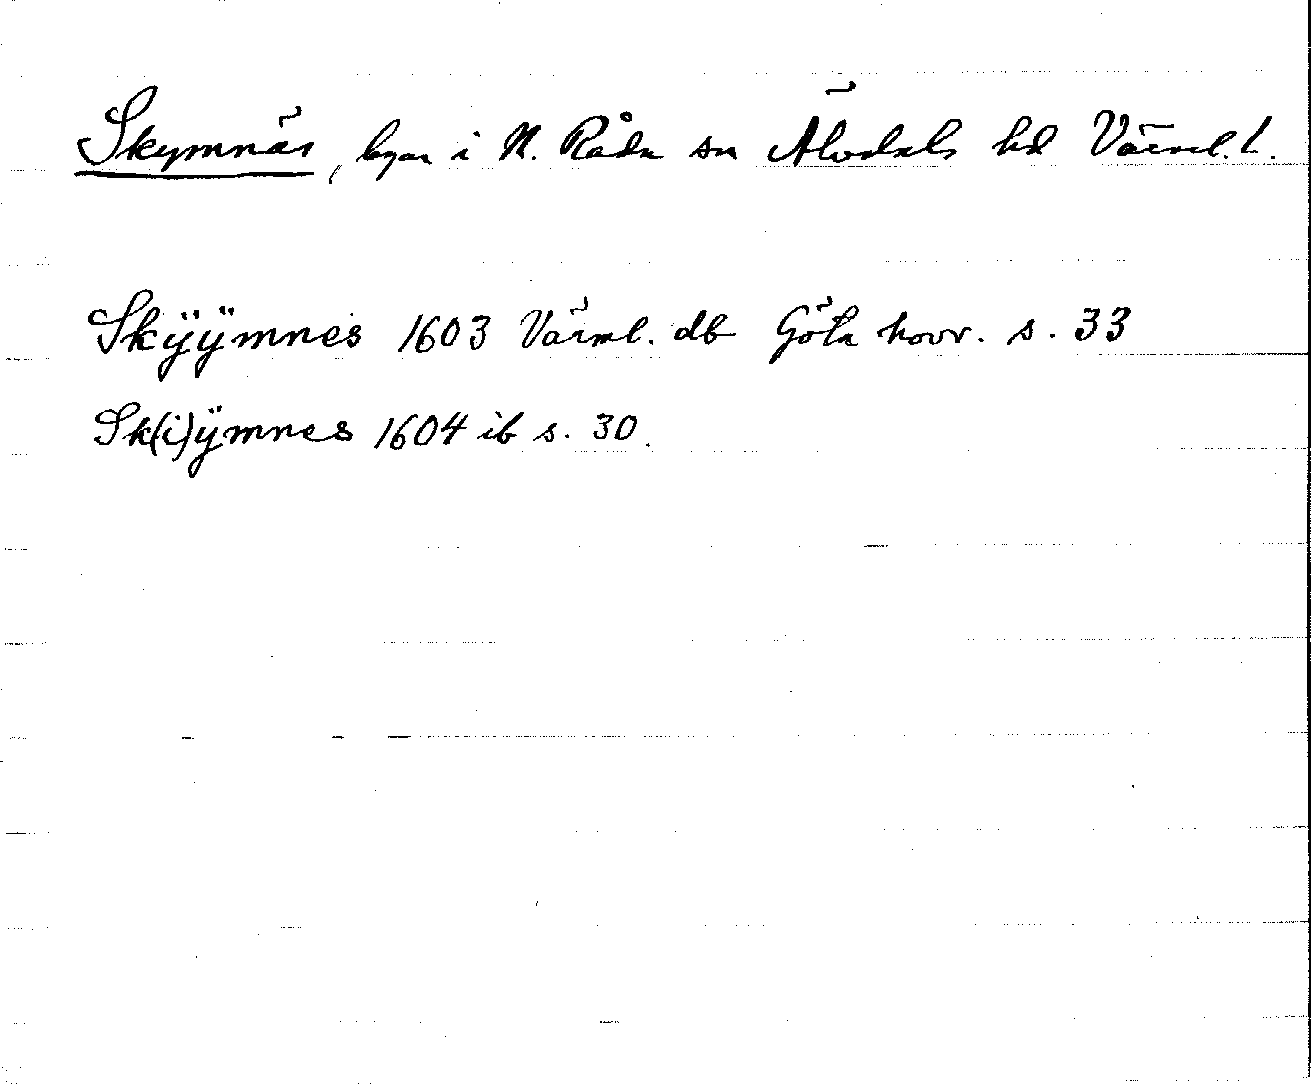 Skymnäs, byar i N. Råda sn Älvdals hd Värml. l.
Skÿÿmnes 1603 Värml. db Göta hovr. s. 33
Sk(i)ÿmnes 1604 ib s. 30.